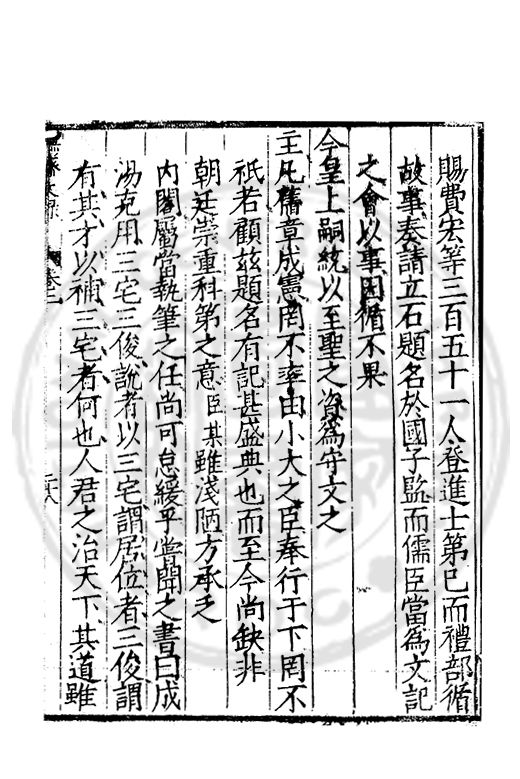 賜費宏等三百五十一人登進士第已而禮部循
故事奏請立石題名於國子監而儒臣當為文記
之會以事因循不果
今皇上嗣統以至聖之資為守文之
主凡舊章成憲罔不率由小大之臣奉行于下罔不
祇若顧兹題名有記甚盛典也而至今尚缺非
朝廷崇重科第之意臣某雖淺陋方承乏
內閣屬當執筆之任尚可怠緩乎嘗聞之書曰成
湯克用三宅三俊説者以三宅謂居位者三俊謂
有其才以補三宅者何也人君之治天下其道雖
卷二